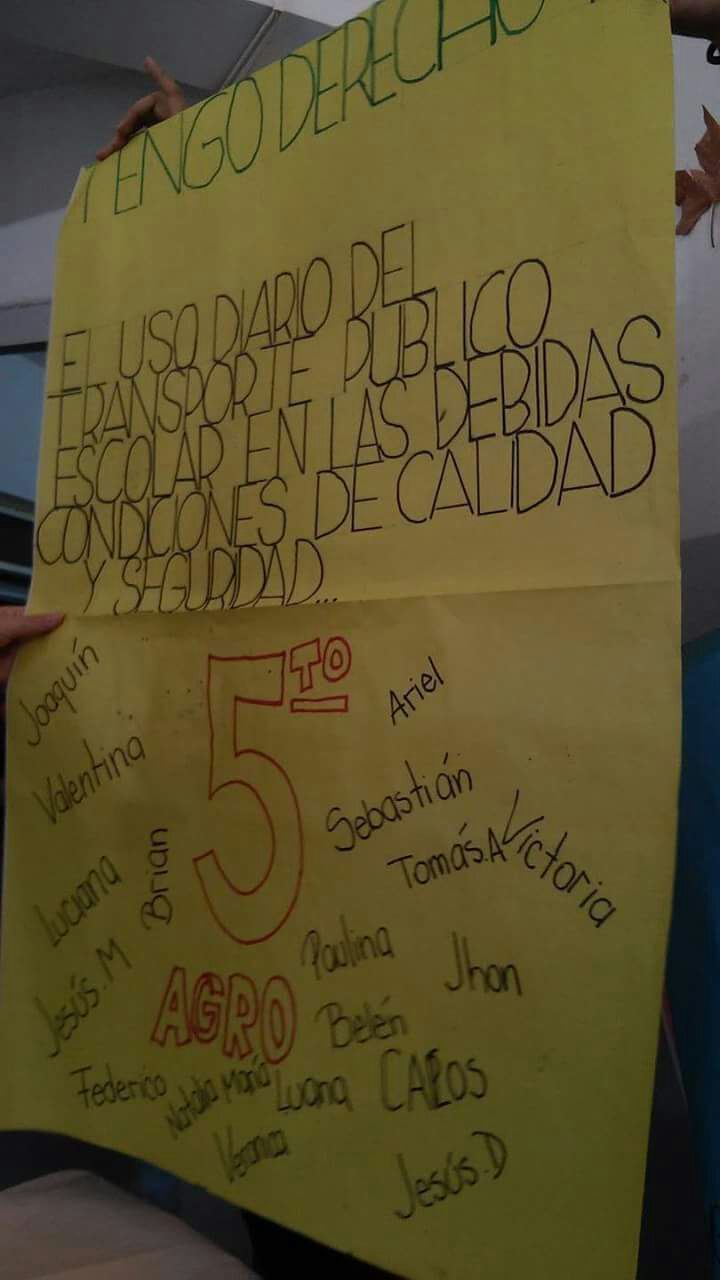 TENGO DERECHO
EL USO DIARIO DEL
TRANSPORTE PUBLICO
ESCOLAR EN LAS DEBIDAS
CONDICIONES DE CALIDAD
Y SEGURIDAD...
5TO
AGRO
Joaquín
Ariel
Valentina
Sebastián
Brian
Tomás.A
Victoria
Luciana
Paulina
Jhon
Jesús.M
Belén
Federico
Natalia María
Luana
CARLOS
Veronica
Jesús.D